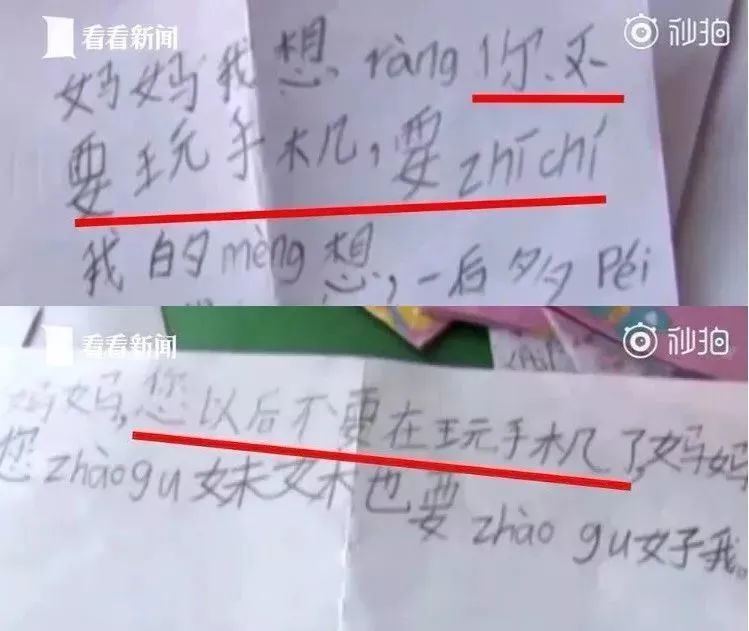 看看新闻
秒拍
妈妈我想ràng你不
要玩手机,要zhīchí
我的mèng想,一后多péi
看看新闻
秒拍
妈妈,您以后不要在玩手机了,妈妈
您zhàogu妹妹也要
zhào gu好我。